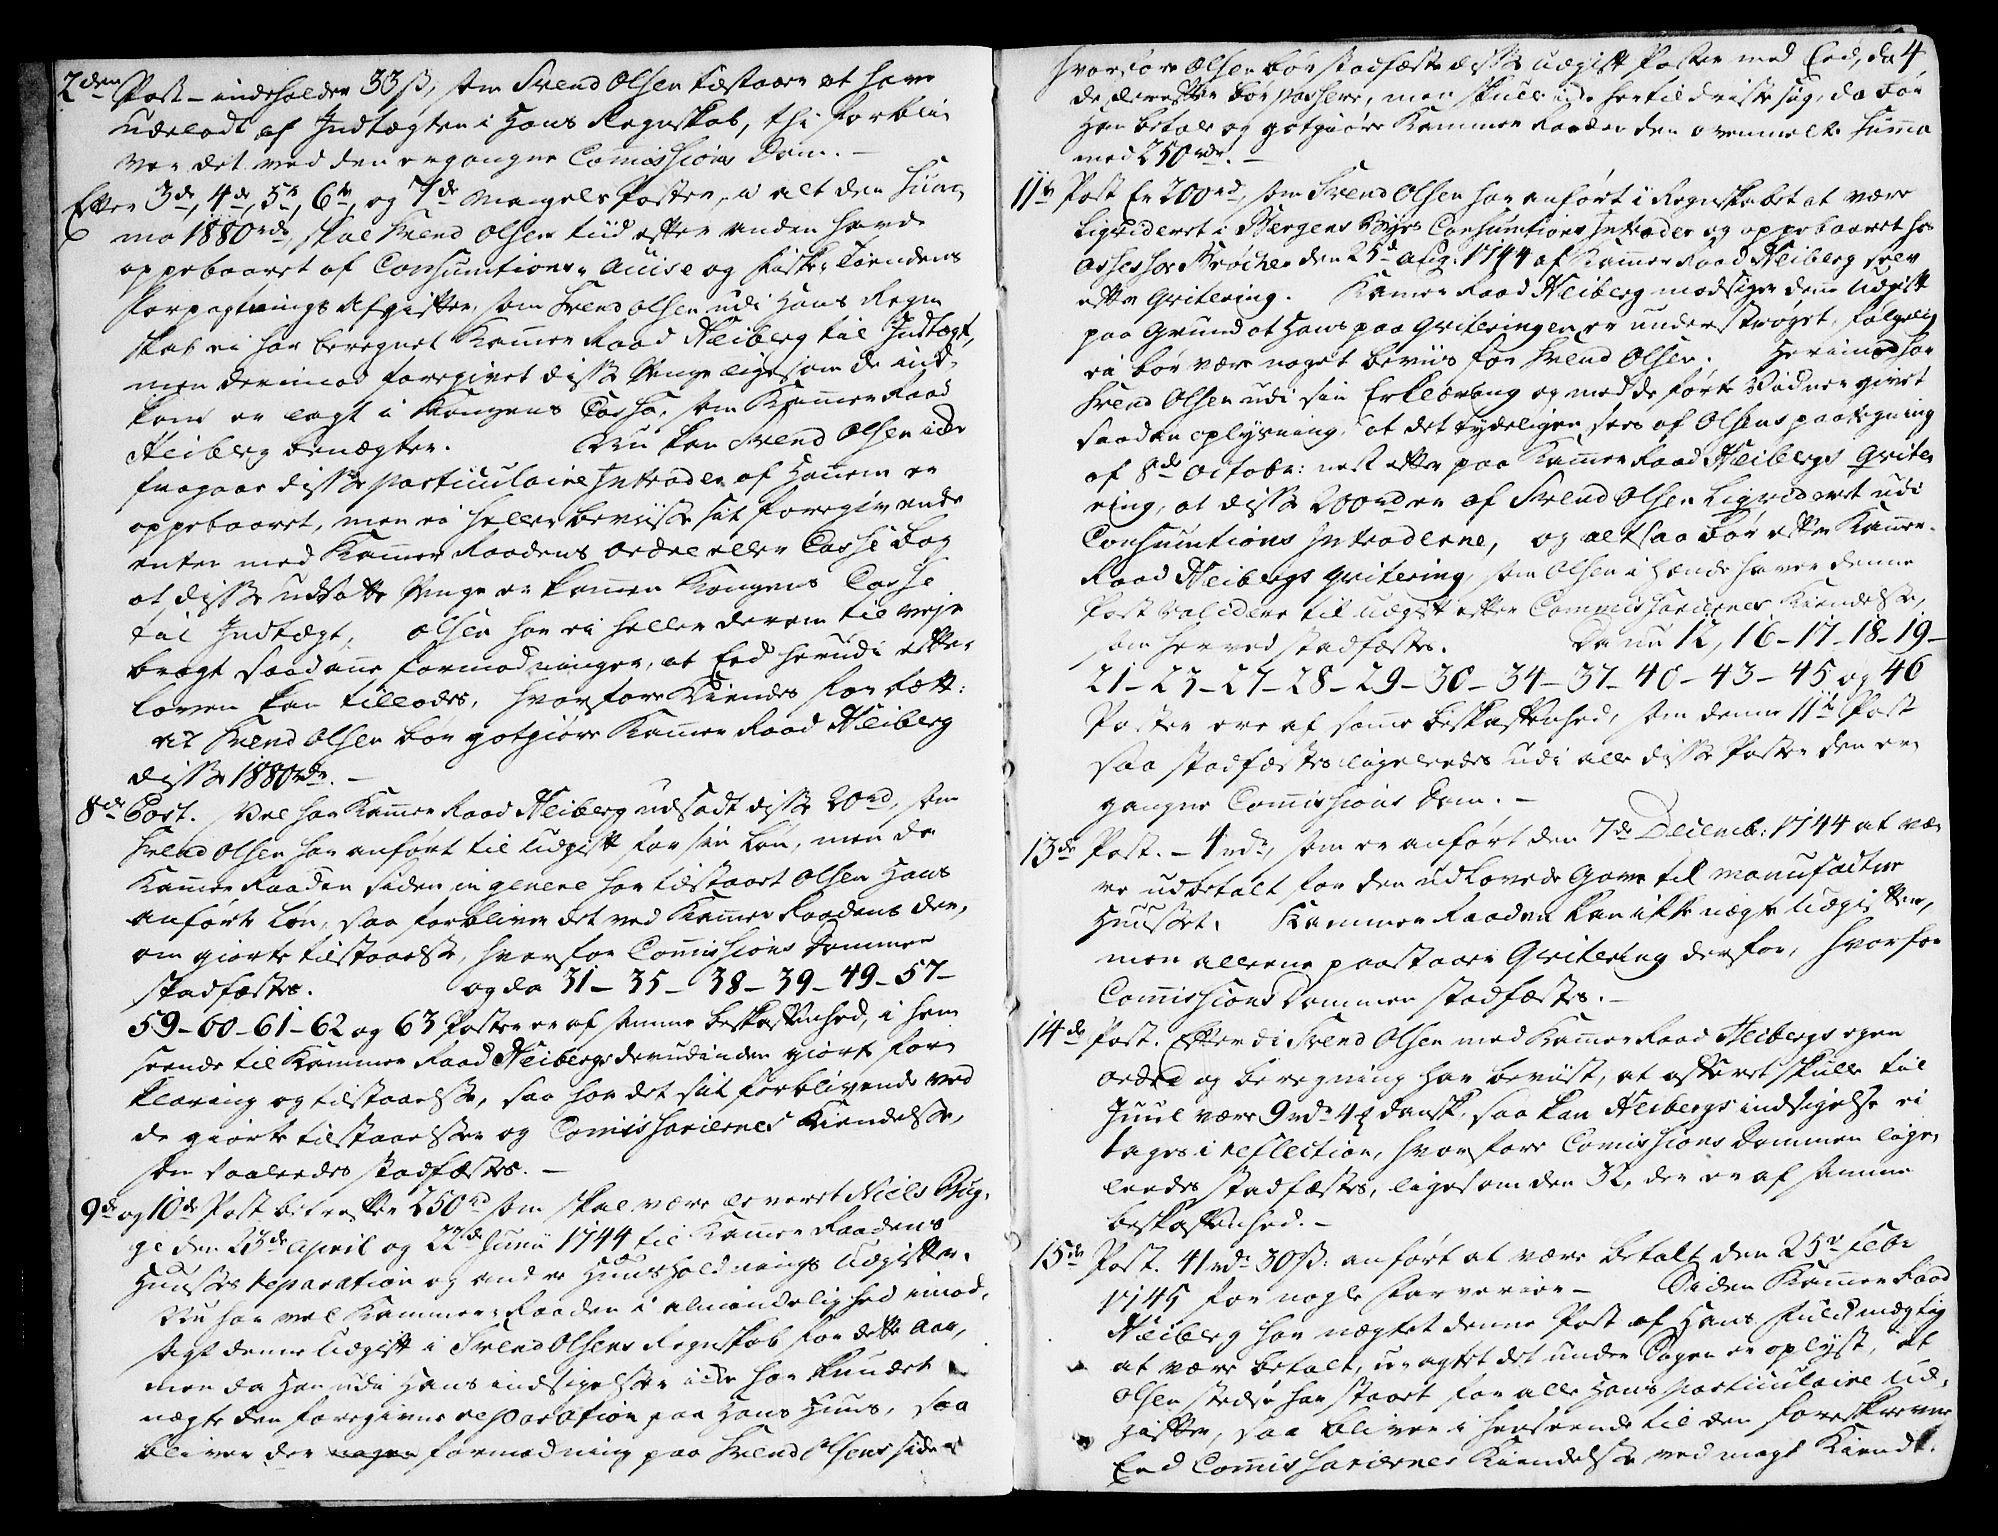 2den Post – indeholder 33 ß, som Svend Olsen tilstaaer at have
udeladt af Indtægten i Hans Regnskab, thi forbliv-
ver det ved den ergangne Comissions Dom. –
Efter 3de, 4de, 5te, 6te, og 7de Mangels Poster, u-alt den Sum-
ma 1880 rdr, skal Svend Olsen tiid efter anden have
oppebaaret af Consumtions- Accise og Fiske-Tiendens
forpagtnings Afgifter, som Svend Olsen udi Hans Regn-
skab ei har beregnet Kammer Raad Heiberg til Indtægt,
men derimod foregivet disse Penge ligesom de ind-
kom er lagt i Kongens Cassa, som Kammer Raad
Heiberg benægter. Nu kan Svend Olsen icke
fragaae disse particulaire Intrader af Hannem er
oppebaaret, men ei heller beviisse sit foregivende
enten med Kammer Raadens ordre eller Casse bog
at disse udsatte Penge er kommen Kongens Casse
til Indtægt, Olsen har ei heller derom til veje
bragt saadanne formodninger, at Eed herudi efter
loven kan tillades, hvorfore Kiendes for Ræt:
at Svend Olsen bør gotgiøre Kammer Raad Heiberg
disse 1880 rdr. –
8de Post. Vel har Kammer Raad Heiberg udsadt disse 20 rd, som
Svend Olsen har anført til Udgift for sin Løn, men da
Kammer Raaden siden in genere har tilstaaet Olsen Hans
anførte Løn, saa forbliver det ved Kammer Raadens der-
om giorte tilstaaelse, hvorfor Comissions Dommen
stadfæstes. og da 31 – 35 – 38 – 39 – 49 – 57 –
59 – 60 – 61 – 62 og 63 Poster er af samme beskaffenhed, i hen-
seende til Kammer Raad Heibergs derudinden giorte for-
klaring og tilstaaelse, saa har det sit forblivende ved
de giorte tilstaaelser og Comissariernes Kiendelse,
som saaledes stadfæstes. –
9de og 10de Post betreffer 250 rd som skal være leveret Niels Bug-
ge den 23de April og 22de Junii 1744 til Kammer Raadens
Huuses reparation og andre Huusholdnings Udgifter.
Nu har vel Kammer-Raaden i almindelighed imod-
sagt denne Udgift i Svend Olsens Regnskab for dette Aar,
men da Han udi Hans indsigelser icke har kundet
nægte den foregivne reparation paa Hans Huus, saa
bliver der nogen formodning paa Svend Olsens side,
hvorfore Olsen bør stadfæste disse Udgift Poster med Eed, da
de derefter bør passere, men skulle icke hertil driste sig, da bør
Han betale og gotgiøre Kammer Raaden den ovenmelte Summa
med 250 rdr. –
11te Post Er 200 rd, som Svend Olsen har anført i Regnskabet at være
Liqvideret i Bergens Byes Consumtions Intrader og oppebaaret hos
Assessor Krøcher den 25d Aug. 1744 af Kammer Raad Heiberg selv
efter Qvitering. Kammer Raad Heiberg modsiger denne Udgift
paa Grund at Hans paa Qviteringen er understrøget, følgelig
ei bør være noget beviis for Svend Olsen. Herimod har
Svend Olsen udi sin Erklæring og med de førte Vidner givet
saadan oplysning, at det tydeligen sees af Olsens paategning
af 8de Octobr: nest efter paa Kammer Raad Heibergs Qvite-
ring, at disse 200 rd er af Svend Olsen Liqvideret udi
Consumtions Intraderne, og altsaa bør efter Kammer-
Raad Heibergs qvitering, som Olsen i Hænde haver denne
Post validere til Udgift efter Commissariernes Kiendelse,
som herved stadfæstes. Da nu 12, 16 – 17 – 18 – 19 –
21 – 23 – 27 – 28 – 29 – 30 – 34 – 37 – 40 – 43 – 45 og 46
Poster ere af samme beskaffenhed, som denne 11te Post
saa stadfæstes ligeledes udi alle disse Poster den er-
gangne Comissions Dom. –
13de Post. – 4 rdr, som er anført den 7de Decemb: 1744 at væ-
re udbetalt for den udlovede Gave til Manufactur
Huuset. Kammer Raaden kan ikke nægte Udgiften,
men allene paastaaer Qvitering derfor, hvorfor
Comissions Dommen stadfæstes. –
14de Post. Efterdi Svend Olsen med Kammer Raad Heibergs egen
ordre og beregning har beviist, at offeret skulle til
Juul være 9 rdr 4 ß dansk, saa kan Heibergs indsigelse ei
tages i reflection, hvorfore Comissions Dommen lige-
ledes stadfæstes, ligesom den 32, der er af samme
beskaffenhed. –
15de Post. 41 rdr 30 ß: anført at være betalt den 25de Febr
1745 for nogle farverier – Siden Kammer Raad
Heiberg har nægtet denne Post af Hans fuldmægtig
at være betalt, uagtet det under Sagen er oplyst, at
Olsen stedse har staaet for alle Hans particulaire Ud-
gifter, saa bliver i henseende til den foreskrevne
Eed Comissariernes Kiendelse ved magt Kiendt.
4